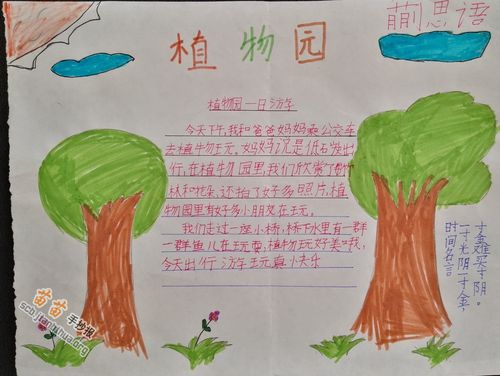 蒯思语
植物园
植物园一日游
今天下午,我和爸爸妈妈乘公交车
去植物园玩。妈妈说是低碳出
行,在植物园里,我们欣赏了树
林和花朵,还拍了好多照片,植
物园里有好多小朋友在玩。
我们走过一座小桥,桥下水里有一群
一群鱼儿在玩耍,植物园好美哦,
今天出行游玩真快乐
时间名言
一寸光阴一寸金,
寸金难买寸光阴。
苗苗手抄报